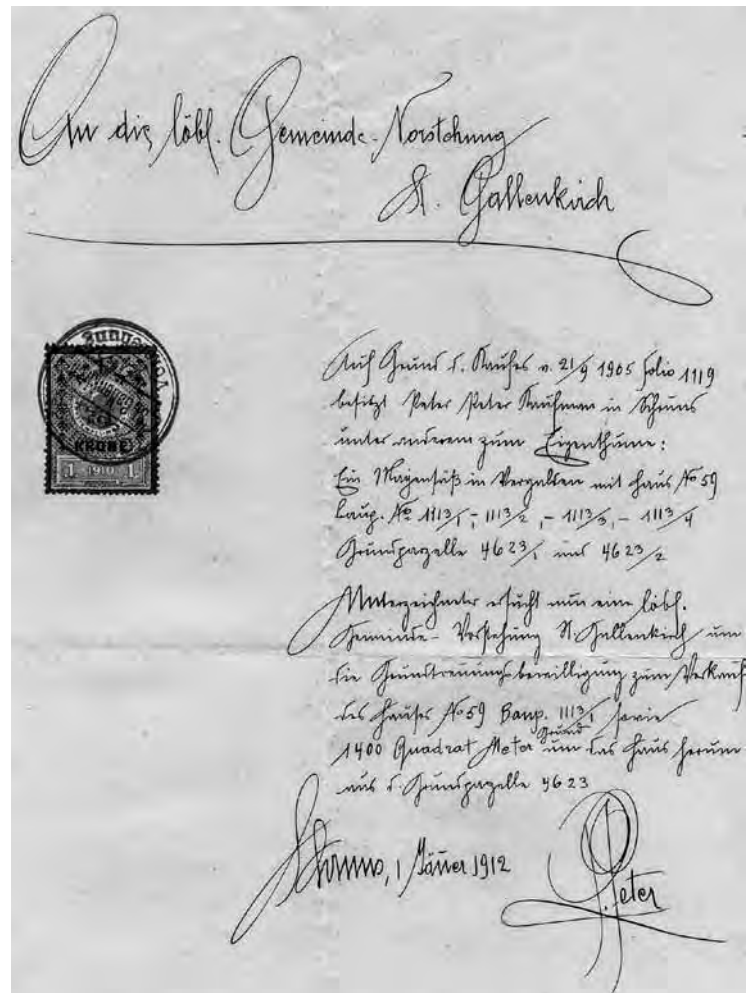 An die löbl. Gemeinde-Vorstehung
St. Gallenkirch
KRONE
1 1910 1
Auf Grund d. Kaufes v. 21/9 1905 folio 1119
besitzt Peter Peter Kaufman in Schruns
unter anderem zum Eigenthume:
Ein Mayensäß in Vergalden mit Haus No 59
Baup. No 1113/1, - 1113/2, - 1113/3, - 1113/4
Grundparzelle 4623/1 und 4623/2
Unterzeichneter ersucht nun eine löbl.
Gemeinde-Vorstehung St. Gallenkirch um
die Grundtrennungsbewilligung zum Verkauf
des Hauses No 59 Baup. 1113/1 sowie
1400 Quadrat Meter Grund um das Haus herum
aus d. Grundparzelle 4623
Schruns, 1 Jänner 1912
P. Peter